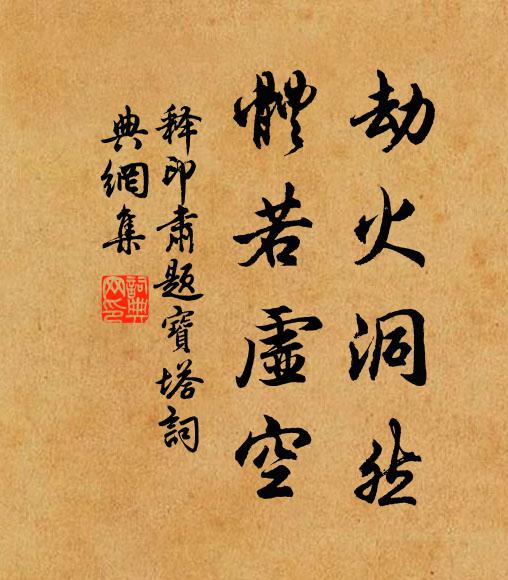 劫火洞然
體若虛空
釋印肅題寶塔詞
典網集
詞典
网印